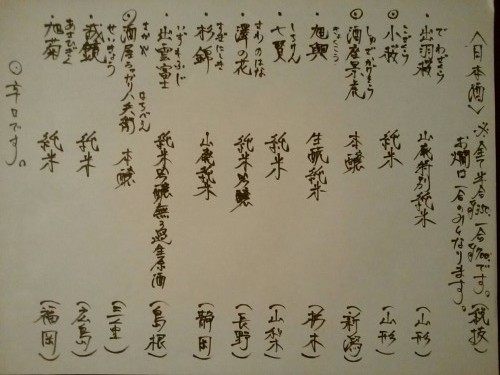 〈日本酒〉 ※全て半合 一合 です。(税抜)
お燗は一合のみとなります。
でわざくら
・出羽桜 山廃特別純米 (山形)
こざくら
◎小桜 純米 (山形)
◎ 景虎 本醸 (新潟)
きょくこう
・旭興 生酛純米 (栃木)
しちけん
・七賢 純米 (山梨)
さわのはな
・澤の花 純米吟醸 (長野)
すぎにしき
・杉錦 山廃純米 (静岡)
いずもふじ
・出雲富士 純米吟醸無ろ過生原酒 (島根)
さかや はちべえ
◎酒屋 八兵衛 本醸 (三重)
せいきょう
・誠鏡 純米 (広島)
あさひきく
・旭菊 純米 (福岡)
◎辛口です。